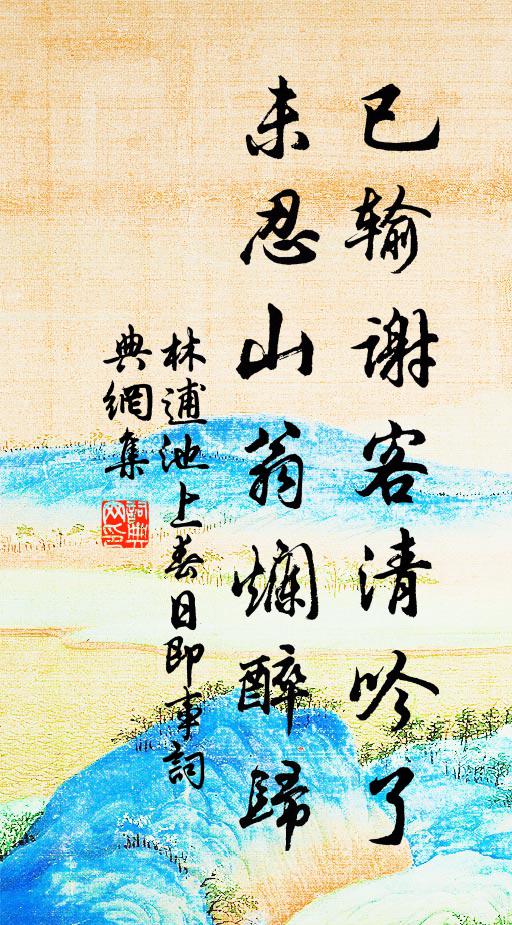 已输谢客清吟了
未忍山翁爛醉歸
林逋池上春日即事詞
典網集
詞典
网印